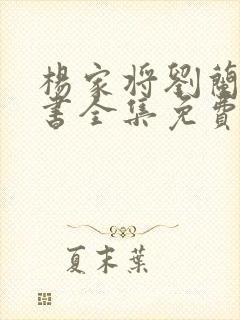 楊家将劉蘭
書全集免費
夏末葉